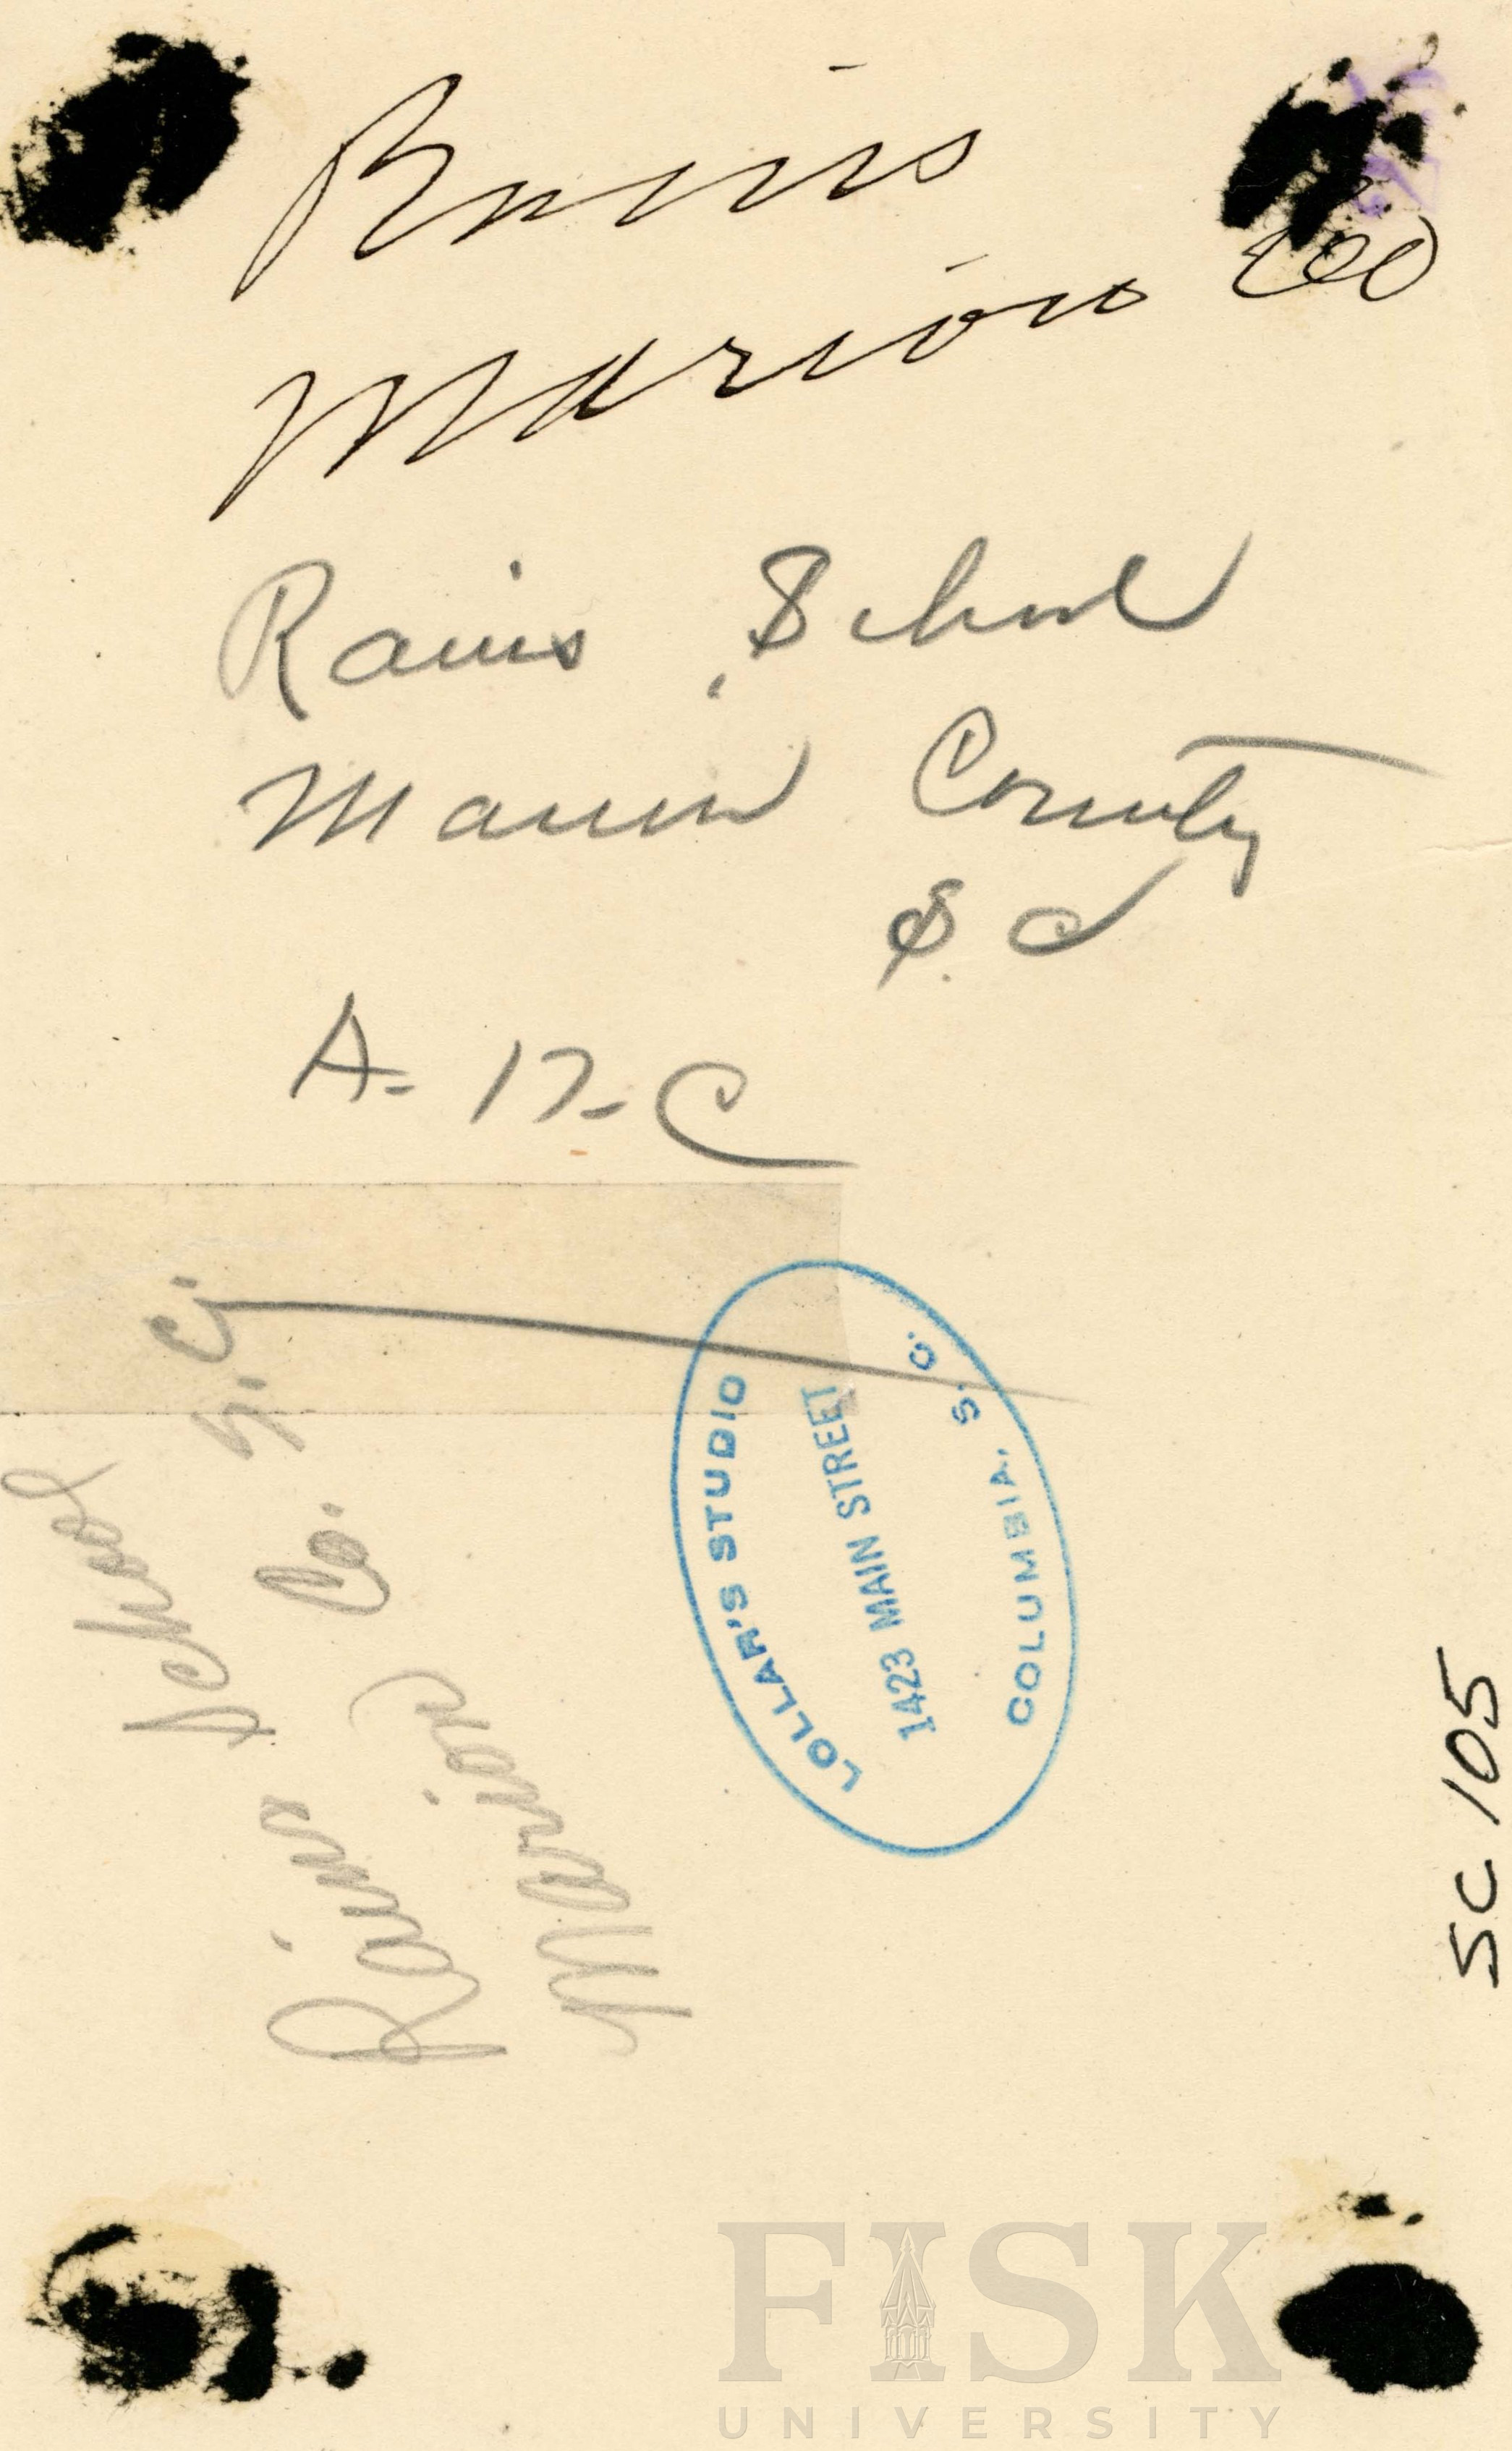 Rains
Marion Co
Rains School
Marion County
S. C
A- 17- C
Rains School
Marion Co. S. C.
LOLLAR'S STUDIO
1423 MAIN STREET
COLUMBIA, S. C.
SC 105
FISK
UNIVERSITY